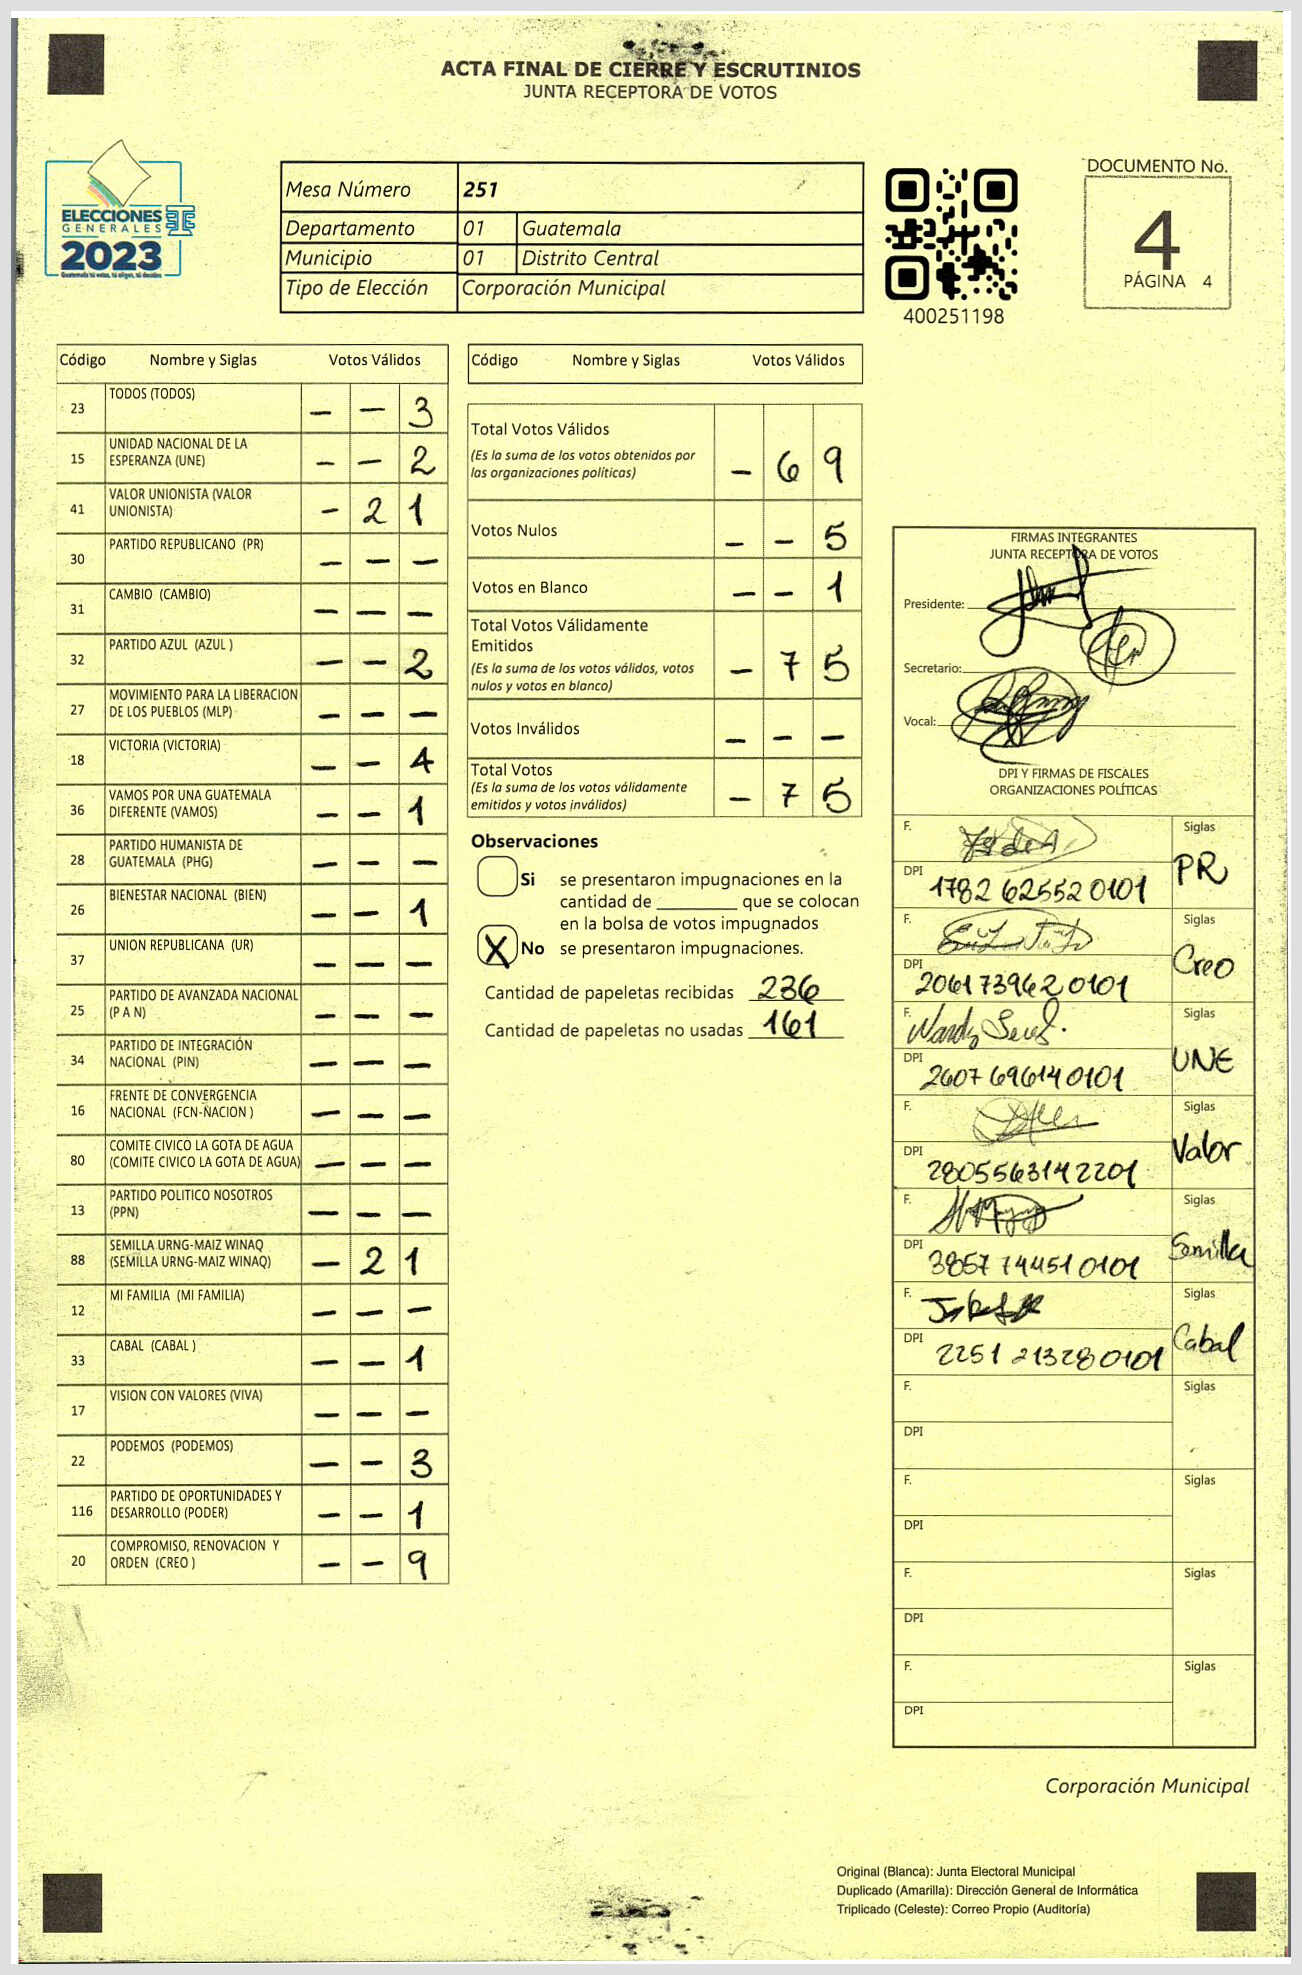 ACTA FINAL DE CIERRE Y ESCRUTINIOS
JUNTA RECEPTORA DE VOTOS
ELECCIONES
GENERALES
2023
Guatemala tú votas, tú eliges, tú decides
TSE
Mesa Número 251
Departamento 01 Guatemala
Municipio 01 Distrito Central
Tipo de Elección Corporación Municipal
400251198
DOCUMENTO No.
4
PÁGINA 4
Código Nombre y Siglas Votos Válidos
23 TODOS (TODOS) — — 3
15 UNIDAD NACIONAL DE LA
ESPERANZA (UNE) — — 2
41 VALOR UNIONISTA (VALOR
UNIONISTA) — 2 1
30 PARTIDO REPUBLICANO (PR) — — —
31 CAMBIO (CAMBIO) — — —
32 PARTIDO AZUL (AZUL ) — — 2
27 MOVIMIENTO PARA LA LIBERACION
DE LOS PUEBLOS (MLP) — — —
18 VICTORIA (VICTORIA) — — 4
36 VAMOS POR UNA GUATEMALA
DIFERENTE (VAMOS) — — 1
28 PARTIDO HUMANISTA DE
GUATEMALA (PHG) — — —
26 BIENESTAR NACIONAL (BIEN) — — 1
37 UNION REPUBLICANA (UR) — — —
25 PARTIDO DE AVANZADA NACIONAL
(P A N) — — —
34 PARTIDO DE INTEGRACIÓN
NACIONAL (PIN) — — —
16 FRENTE DE CONVERGENCIA
NACIONAL (FCN-NACION ) — — —
80 COMITE CIVICO LA GOTA DE AGUA
(COMITE CIVICO LA GOTA DE AGUA) — — —
13 PARTIDO POLITICO NOSOTROS
(PPN) — — —
88 SEMILLA URNG-MAIZ WINAQ
(SEMILLA URNG-MAIZ WINAQ) — 2 1
12 MI FAMILIA (MI FAMILIA) — — —
33 CABAL (CABAL ) — — 1
17 VISION CON VALORES (VIVA) — — —
22 PODEMOS (PODEMOS) — — 3
116 PARTIDO DE OPORTUNIDADES Y
DESARROLLO (PODER) — — 1
20 COMPROMISO, RENOVACION Y
ORDEN (CREO ) — — 9
Código Nombre y Siglas Votos Válidos
Total Votos Válidos
(Es la suma de los votos obtenidos por
las organizaciones políticas) — 6 9
Votos Nulos — — 5
Votos en Blanco — — 1
Total Votos Válidamente
Emitidos
(Es la suma de los votos válidos, votos
nulos y votos en blanco) — 7 5
Votos Inválidos — — —
Total Votos
(Es la suma de los votos válidamente
emitidos y votos inválidos) — 7 5
Observaciones
Si se presentaron impugnaciones en la
cantidad de ________ que se colocan
en la bolsa de votos impugnados
X No se presentaron impugnaciones.
Cantidad de papeletas recibidas 236
Cantidad de papeletas no usadas 161
FIRMAS INTEGRANTES
JUNTA RECEPTORA DE VOTOS
Presidente:
Secretario:
Vocal:
DPI Y FIRMAS DE FISCALES
ORGANIZACIONES POLÍTICAS
F. Siglas
PR
DPI 1782 62552 0101
F. Siglas
Creo
DPI 2061 73962 0101
F. Siglas
UNE
DPI 2607 69614 0101
F. Siglas
Valor
DPI 2805563142201
F. Siglas
Semilla
DPI 3857 74451 0101
F. Siglas
Cabal
DPI 2251 21328 0101
F. Siglas
DPI
F. Siglas
DPI
F. Siglas
DPI
F. Siglas
DPI
Corporación Municipal
Original (Blanca): Junta Electoral Municipal
Duplicado (Amarilla): Dirección General de Informática
Triplicado (Celeste): Correo Propio (Auditoría)